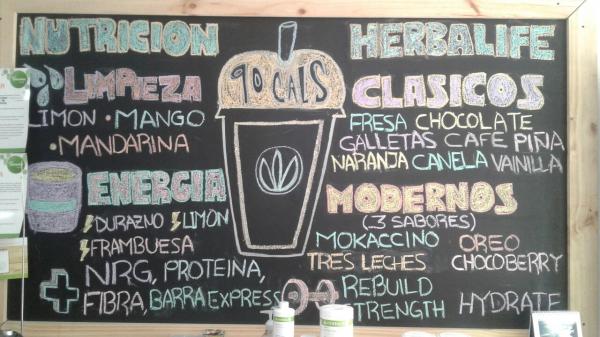 NUTRICION
HERBALIFE
90 CALS
LIMPIEZA
LIMON · MANGO
· MANDARINA
CLASICOS
FRESA CHOCOLATE
GALLETAS CAFE PIÑA
NARANJA CANELA VAINILLA
ENERGIA
DURAZNO LIMON
FRAMBUESA
MODERNOS
(3 SABORES)
MOKACCINO OREO
TRES LECHES CHOCOBERRY
NRG, PROTEINA,
FIBRA, BARRA EXPRESS
REBUILD
STRENGTH HYDRATE